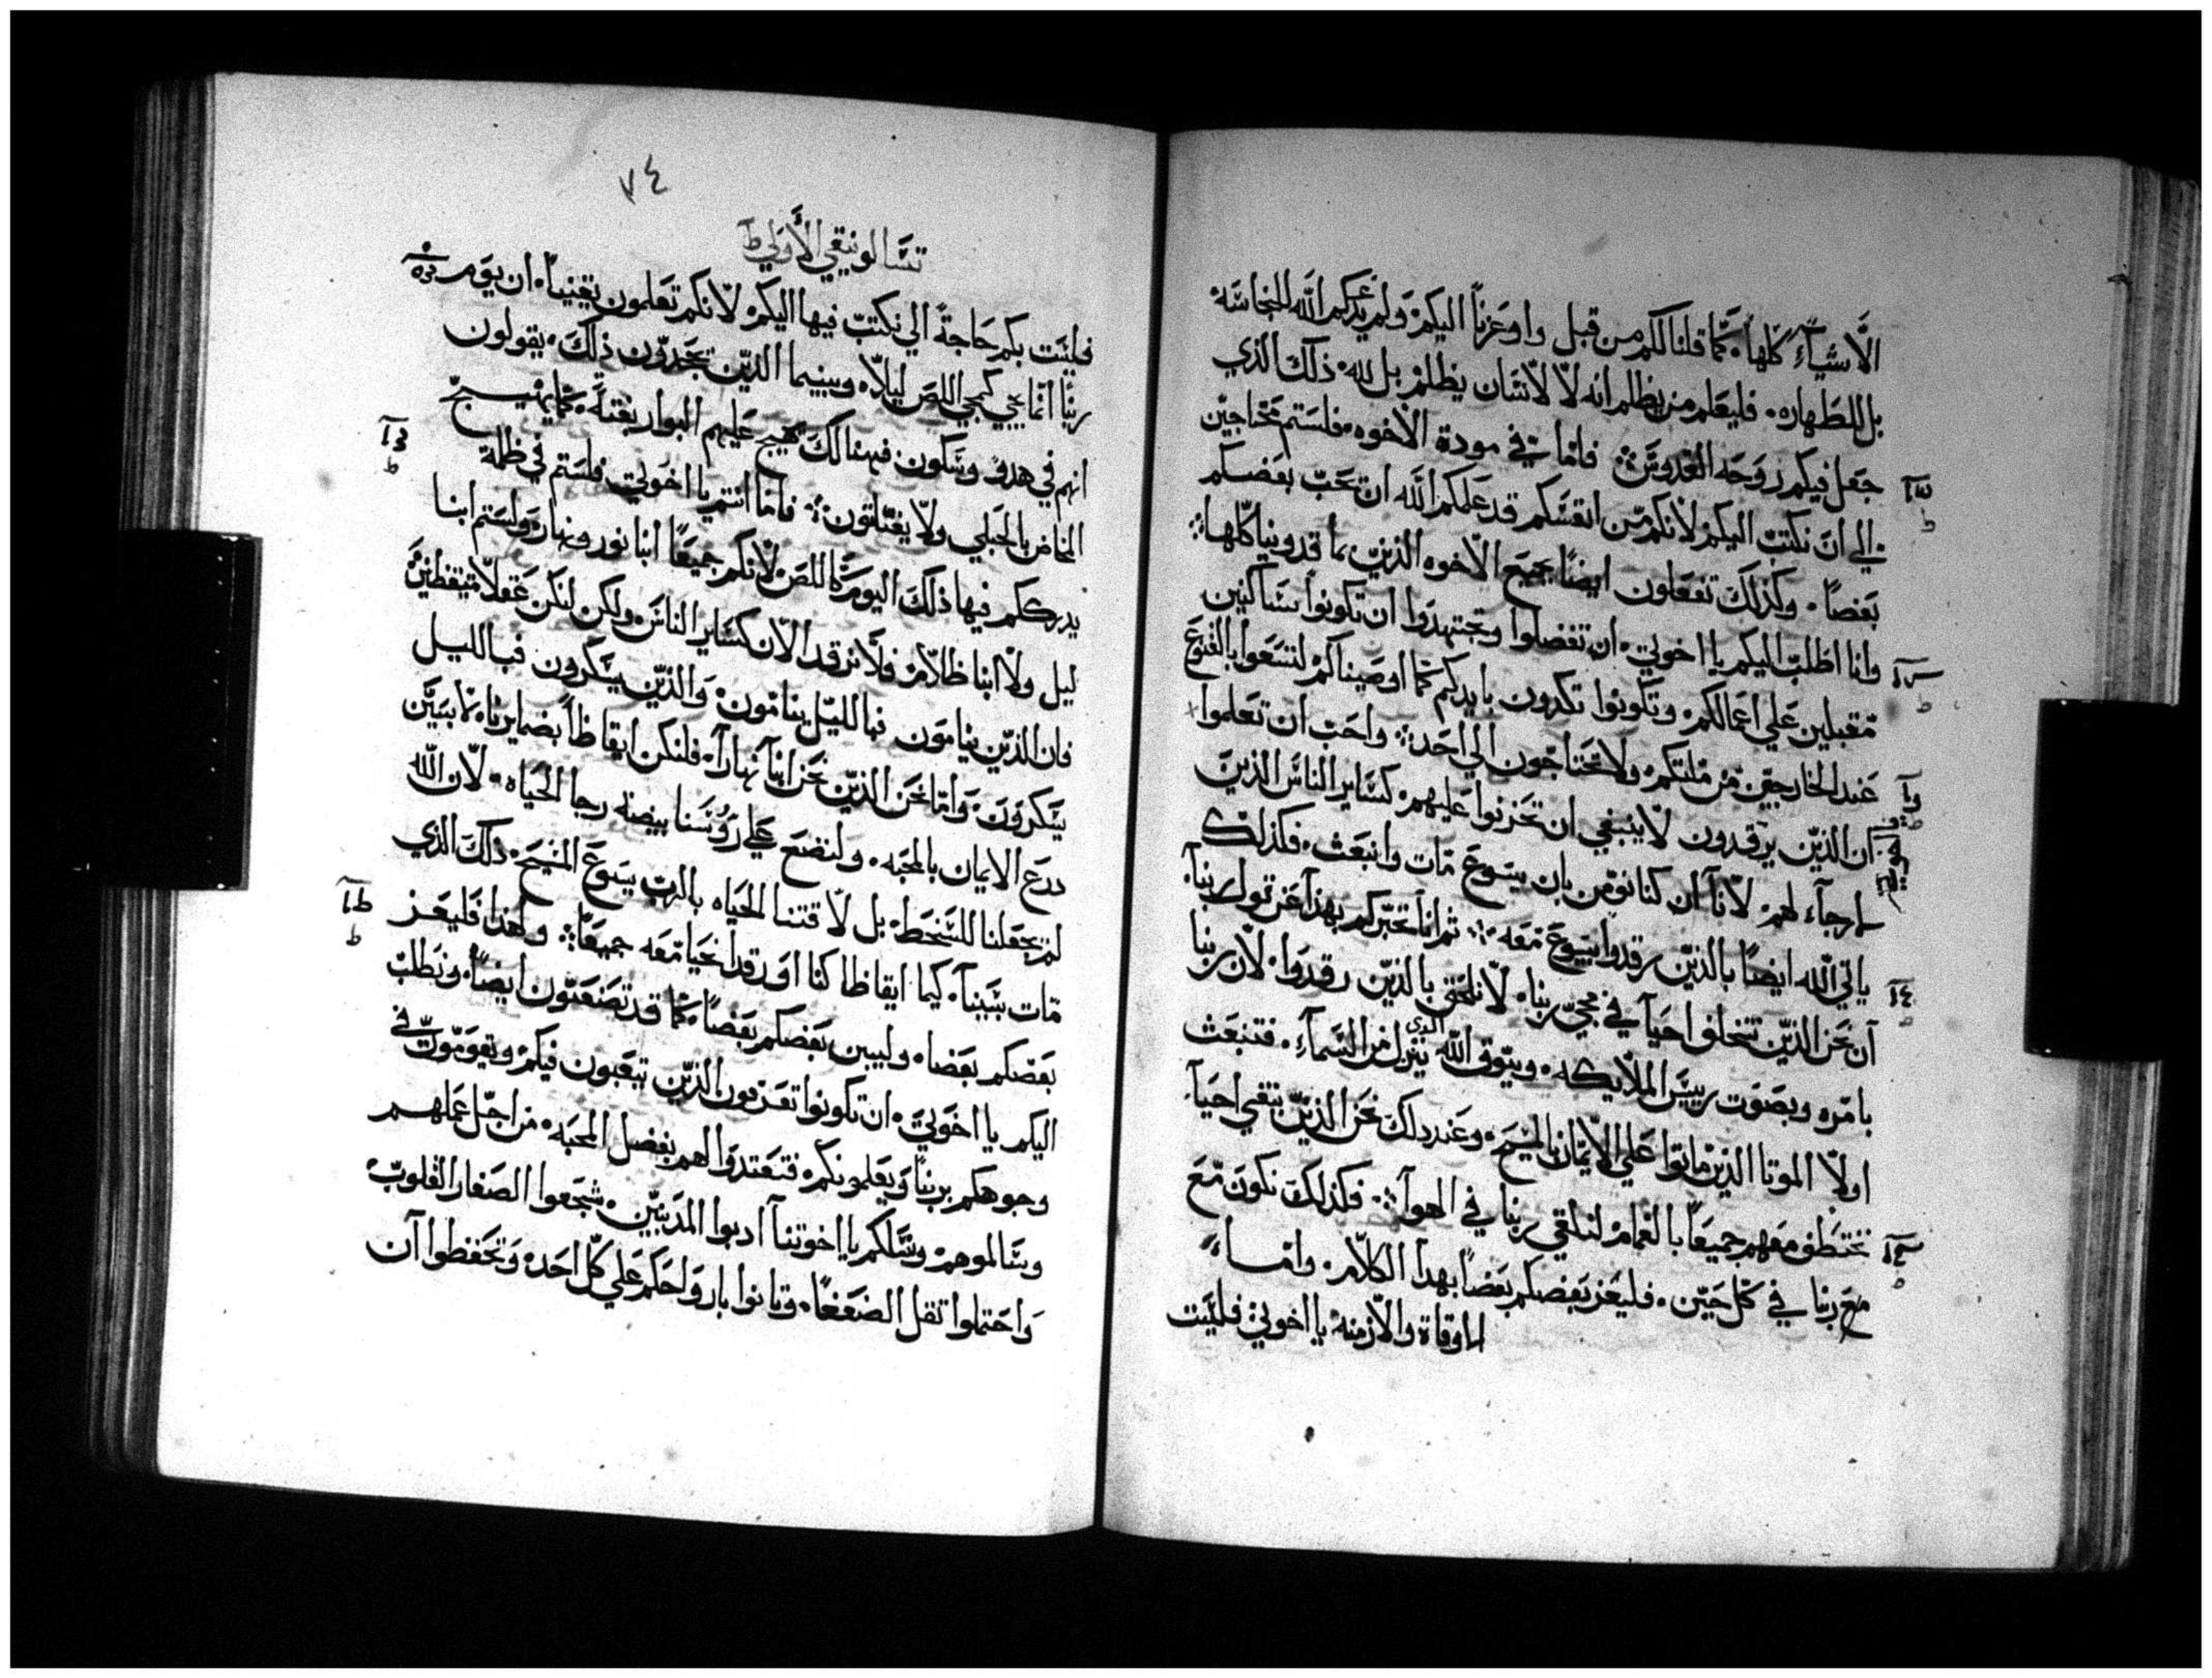 الأشياء كلها كما قلنا لكم من قبل واوعزنا اليكم ولم يدعكم الله للنجاسه
بل للطهاره فليعلم من يظلم انه لا لانسان يظلم بل لله ذلك الذي
جعل فيكم روحه القدوس فاما في مودة الاخوه فلستم محتاجين
الي ان نكتب اليكم لانكم من انفسكم قد علمكم الله ان تحب بعضكم
بعضا وكذلك تفعلون ايضا بجميع الاخوه الذين بما قدونيا كلها
وانا اطلب اليكم يا اخوتي ان تفضلوا وتجتهدوا ان تكونوا ساكنين
مقبلين علي اعمالكم وتكونوا تكدون بايديكم كما اوصيناكم لتسعوا بالقنوع
عند الخارجين من ملتكم ولا تحتاجون الي احد واحب ان تعلموا
ان الذين يرقدون لا ينبغي ان تحزنوا عليهم كساير الناس الذين
لا رجآء لهم لانا ان كنا نومن بان يسوع مات وانبعث فكذلك
ياتي الله ايضا بالذين رقدوا بيسوع معه ثم انا نخبركم بهذا عن قول ربنا
ان نحن الذين نتخلف احيا في مجي ربنا لا نلحق بالذين رقدوا لان ربنا
بامره وبصوت رييس الملايكه وببوق الله الذي ينزل من السمآء فتنبعث
اولا الموتا الذين ماتوا علي الايمان بالمسيح وعند ذلك نحن الذين نبقي احيآ
نختطف معهم جميعا بالغمام لنلقي ربنا في الهوآ فكذلك نكون مع
مع ربنا في كل حين فليعز بعضكم بعضا بهدا الكلام واما
الاوقاة والازمنه يا اخوتي فليست
٧٤
تسالونيقي الأولي
فليست بكم حاجة الي نكتب فيها اليكم لانكم تعلمون يقينا ان يوم
ربنا انما يجي كمجي اللص ليلا وبينما الذين يجدون ذلك يقولون
انهم في هدو وسكون فهنالك يهيج عليهم البوار بغتة كما يهيج
المخاض بالحبلي ولا يفلتون فاما انتم يا اخوتي فلستم في ظلمة
يدرككم فيها ذلك اليوم كاللص لانكم جميعا ابنا نور ونهار ولستم ابنا
ليل ولا ابنا ظلام فلا نرقد الان كساير الناس ولكن لنكن عقلا متيقظين
فان الذين ينامون فبالليل ينامون والذين يسكرون فبالليل
يسكرون واما نحن الذين نحن ابنآ نهارآ فلنكن ايقاظا بضمايرنا لابسين
درع الايمان بالمحبه ولنضع علي روسنا بيضة رجا الحياه لان الله
لم يجعلنا للسخط بل لاقتنا الحياه بالرب يسوع المسيح ذلك الذي
مات بسببنا كيما ايقاظا كنا او رقدا نحيا معه جميعا ولهدا فليعز
بعضكم بعضا وليبين بعضكم بعضا كما قد تصنعون ايضا ونطلب
اليكم يا اخوتي ان تكونوا تعرفون الذين يتعبون فيكم ويقومون في
وجوهكم بربنا ويعلمونكم فتعتدوا لهم بفضل المحبه من اجل عملهم
وسالموهم ونسلكم يا اخوتنا ادبوا المذنبين شجعوا الصغار القلوب
واحتملوا ثقل الضعفا وتانوا بارواحكم علي كل احد وتحفظوا ان